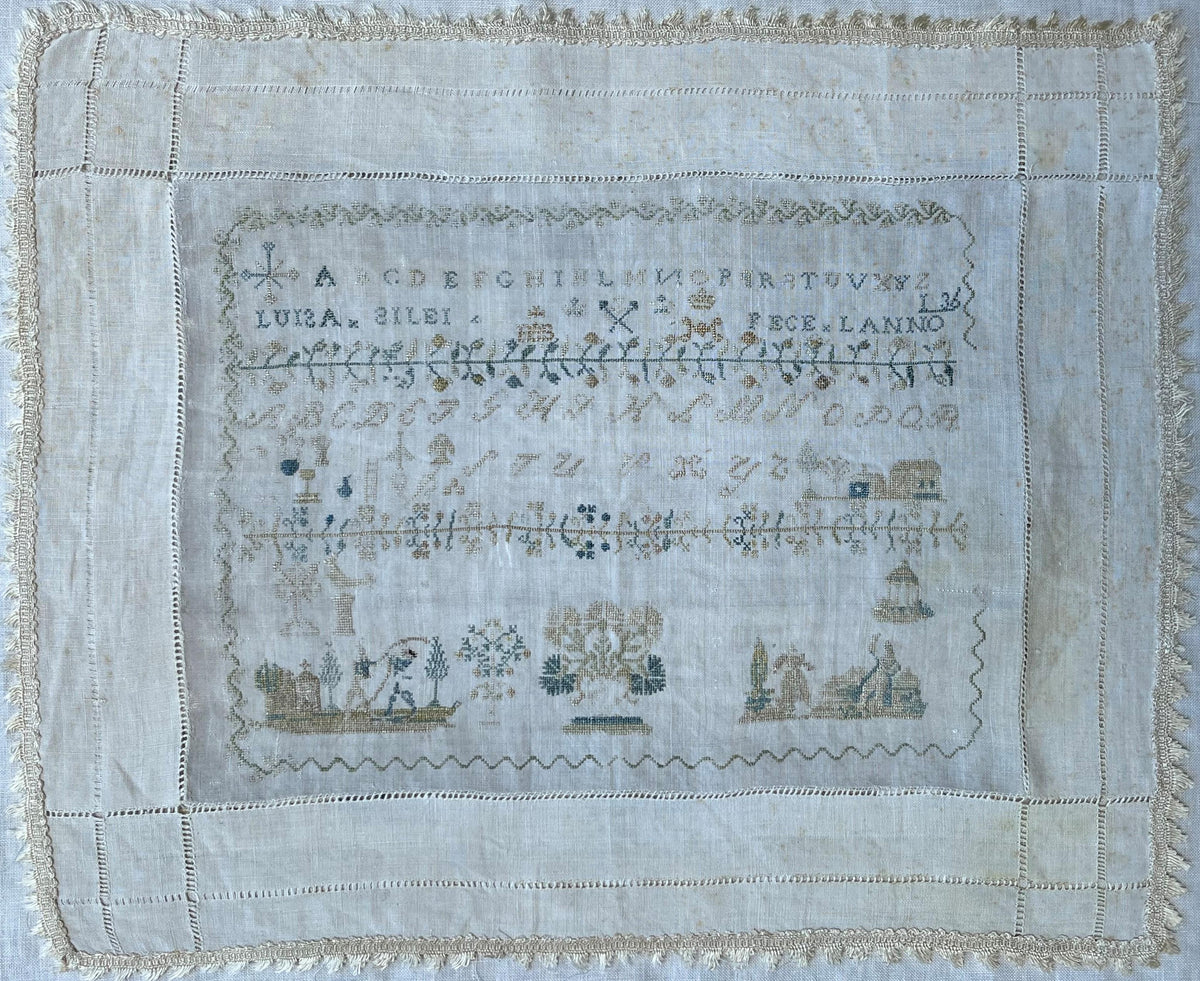 A B C D E F G H I K L M N O P Q R S T U V X Y Z
LUISA x SILEI x FECE x LANNO
A B C D E F G H I K L M N O P Q R
S T U V X Y Z